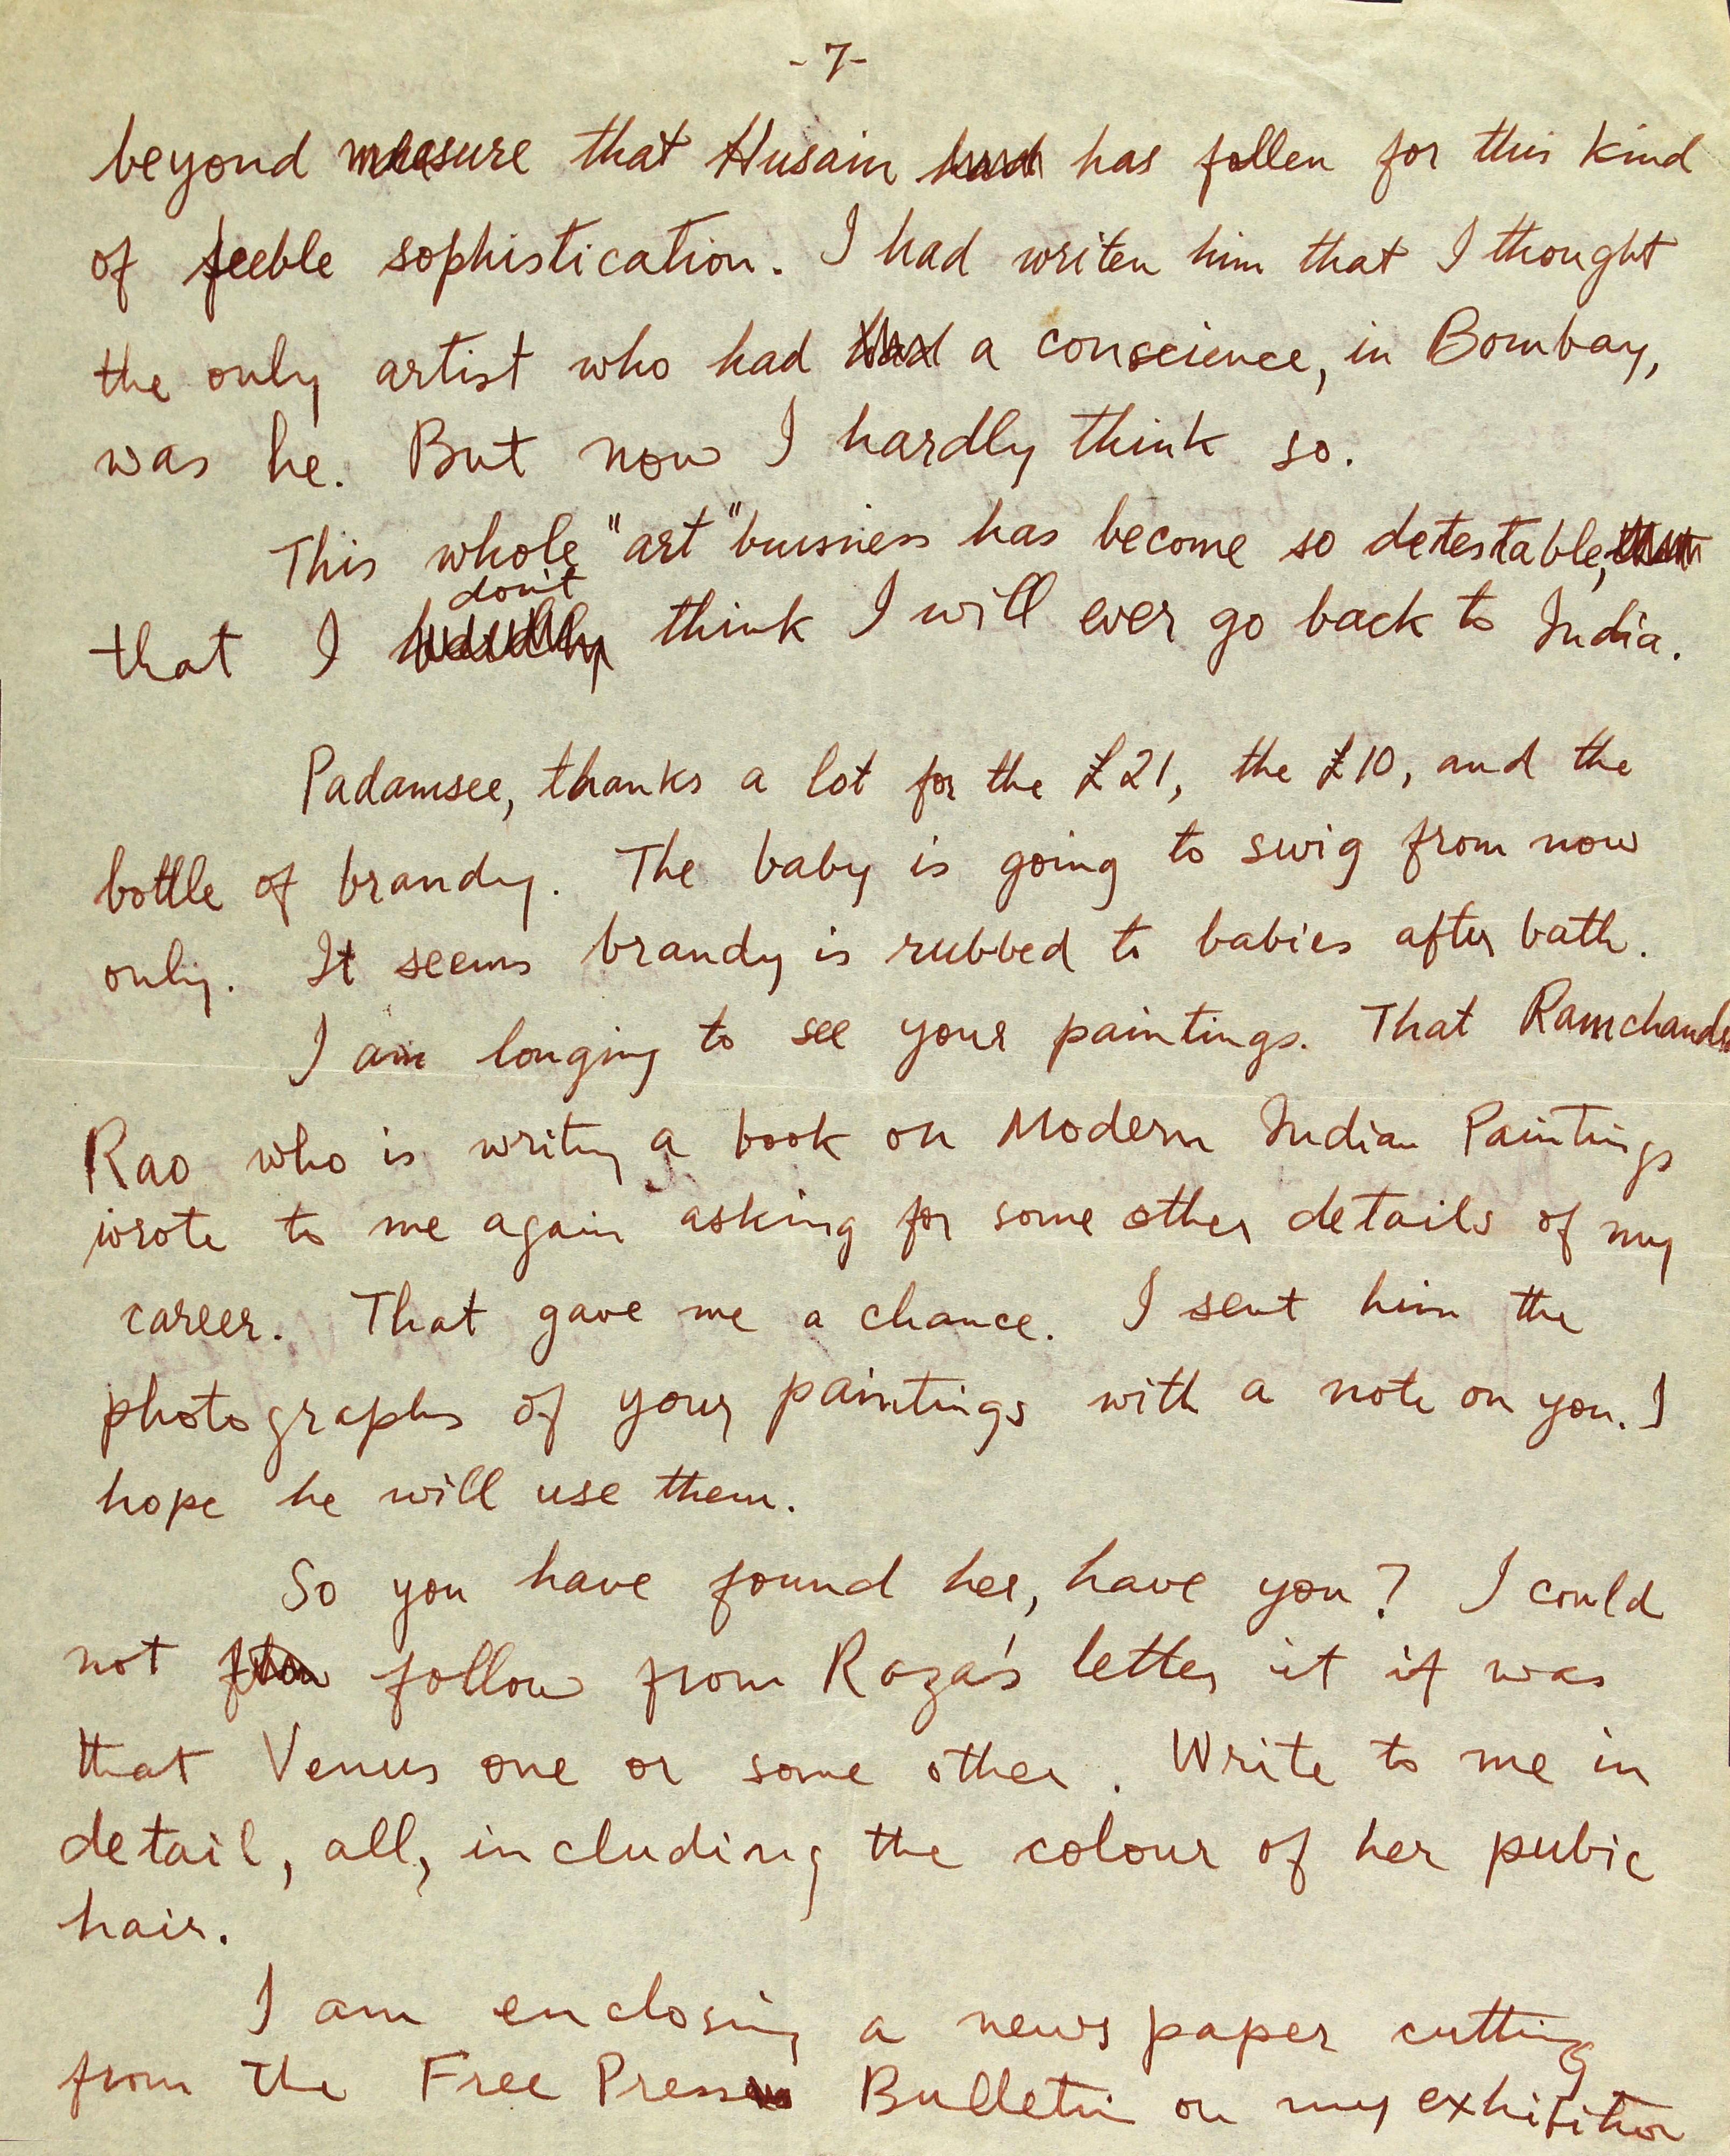 -7-
beyond measure that Husain has fallen for this kind
of feeble sophistication. I had writen him that I thought
the only artist who had a conscience, in Bombay,
was he. But now I hardly think so.
This whole "art" buisness has become so detestable,
don't
that I think I will ever go back to India.
Padamsee, thanks a lot for the £21, the £10, and the
bottle of brandy. The baby is going to swig from now
only. It seems brandy is rubbed to babies after bath.
I am longing to see your paintings. That Ramchandra
Rao who is writing a book on Modern Indian Paintings
wrote to me again asking for some other details of my
career. That gave me a chance. I sent him the
photographs of your paintings with a note on you. I
hope he will use them.
So you have found her, have you? I could
not follow from Raza's letter it if was
that Venus one or some other. Write to me in
detail, all, including the colour of her pubic
hair.
I am enclosing a news paper cutting
from the Free Press Bulletin on my exhibition